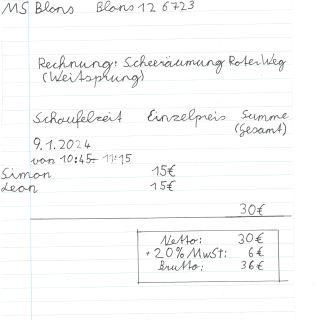 MS Blons Blons 12 6723
Rechnung: Scheeräumung Roter Weg
(Weitsprung)
Schaufelzeit Einzelpreis Summe
(Gesamt)
9.1.2024
von 10:45- 11:15
Simon 15€
Leon 15€
30€
Netto: 30€
+ 20% MwSt: 6€
Brutto: 36€